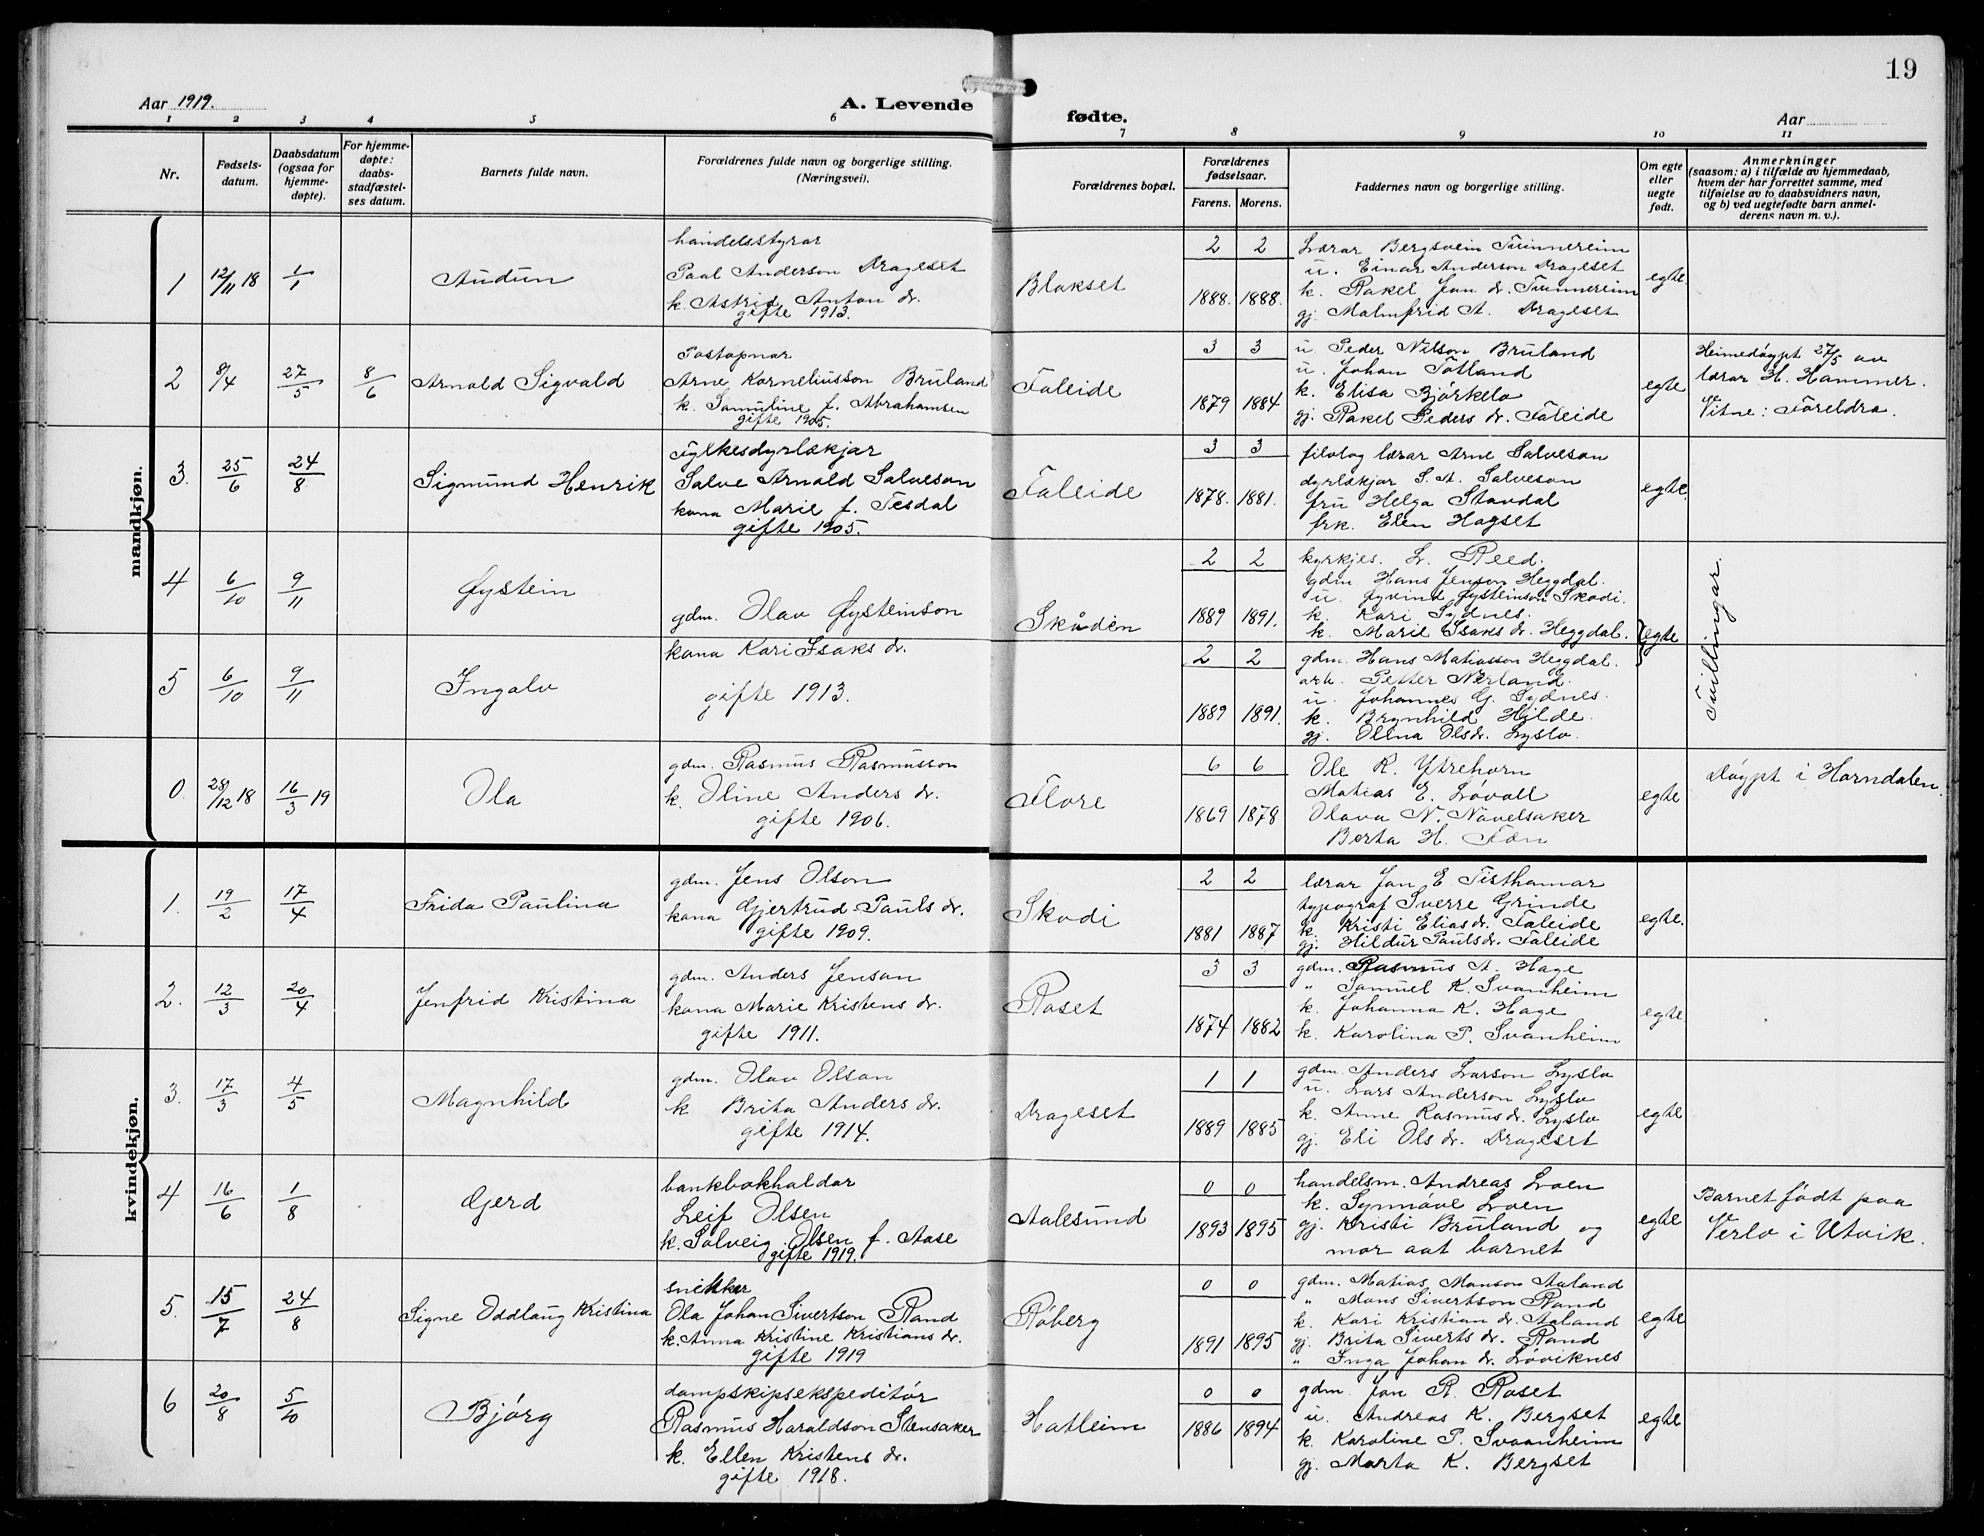 19
Aar 1919.
A. Levende
fødte.
Aar
1 2 3 4 5 6 7 8 9 10 11
Nr.
Fødsels-
datum.
Daabsdatum
(ogsaa for
hjemme-
døpte).
For hjemme-
døpte:
daabs-
stadfæstel-
ses datum.
Barnets fulde navn.
Forældrenes fulde navn og borgerlige stilling.
(Næringsvei).
Forældrenes bopæl.
Forældrenes
fødselsaar.
Farens. Morens.
Faddernes navn og borgerlige stilling.
Om egte
eller
uegte
født.
Anmerkninger
(saasom: a) i tilfælde av hjemmedaab,
hvem der har forrettet samme, med
tilføielse av to daabsvidners navn,
og b) ved uegtefødte barn anmel-
derens navn m. v.).
mandkjøn.
1 12/11 18 1/1 Audun
handelsstyrar
Paal Anderson Drageset
k. Astrid Anton dr.
gifte 1913.
Blakset
2 2
1888. 1888.
Lærar Bergsvein Tunnereim
u. Einar Anderson Drageset
k. Rakel Jan dr. Tunnereim
gj. Malmfrid A. Drageset
egte.
2 8/4 27/5 8/6 Arnold Sigvald
Postopnar
Arne Korneliusson Bruland
k. Samuline f. Abrahamsen
gifte 1905.
Faleide
3 3
1879 1884
u. Peder Nilson Bruland
u. Johan Totland
k. Elisa Bjørkelo
gj. Rakel Peders dr. Faleide
egte
Heimedøypt 27/5 av
lærar H. Hammer.
Vitne: Foreldra.
3. 25/6 24/8 Sigmund Henrik
Fylkesdyrlækjar
Salve Arnold Salveson
kona Marie f. Tesdal
gifte 1905.
Faleide
3 3
1878. 1881.
filolog lærar Arne Salveson
dyrlækjar S. A. Salveson
fru Helga Stavdal
frk. Elen Hagset
egte.
4 6/10 9/11 Øystein
gdm. Olav Øysteinson
kona Kari Isaks dr.
gifte 1913.
Skåden
2 2
1889 1891.
kyrkjes. L. Reed.
gdm. Hans Jenson Heggdal.
u. Øyvind Øysteinson Skodi.
k. Kari Sydnes.
k. Marie Isaks dr. Heggdal.
egte
Tvillingar.
5 6/10 9/11 Ingolv
2 2
1889 1891.
gdm. Hans Matiasson Heggdal.
arb. Petter Nerland.
u. Johannes G. Sydnes.
k. Brynhild Hjlde.
gj. Olina Olsdr. Lyslo.
0. 28/12 18 16/3 19 Ola
gdm. Rasmus Rasmusson
k. Oline Anders dr.
gifte 1906.
Flore
6 6
1869 1878
Ole R. Ytrehorn
Matias E. Lovoll
Olava N. Navelsaker
Berta H. Fæn
egte
Døypt i Horndalen.
kvindekjøn.
1. 19/2 17/4 Frida Paulina
gdm. Jens Olson
kona Gjertrud Pauls dr.
gifte 1909.
Skodi
2 2
1881 1887
lærar Jon E. Tisthamar
typograf Sverre Grinde
k. Kristi Elias dr. Faleide
gj. Hildur Pauls dr. Faleide
egte.
2. 12/3 20/4 Jenfrid Kristina
gdm. Anders Jenson
kona Marie Kristens dr.
gifte 1911.
Roset
3 3
1874 1882
gdm. Rasmus A. Hage
" Samuel K. Svanheim
k. Johanna K. Hage
k. Karolina P. Svanheim
egte.
3. 17/3 4/5 Magnhild
gdm. Olav Olson
k Brita Anders dr.
gifte 1914.
Drageset
1 1
1889 1885
gdm. Anders Larson Lyslo
u. Lars Anderson Lyslo
k. Anne Rasmus dr. Lyslo
gj. Eli Ols dr. Drageset
egte
4 16/6 1/8 Gjerd
bankbokhaldar
Leif Olsen
k. Solveig Olsen f. Aase
gifte 1919.
Aalesund
0 0
1893 1895
handelsm. Andreas Loen
k. Synnøve Loen
gj. Kristi Bruland og
mor aat barnet
egte
Barnet født paa
Verlo i Utvik.
5. 15/7 24/8 Signe Oddlaug Kristina
snikkar
Ola Johan Sivertson Rand
k. Anna Kristine Kristians dr.
gifte 1919
Røberg
0 0
1891 1895
gdm. Matias Monson Aaland
" Mons Sivertson Rand
k. Kari Kristian dr. Aaland
gj. Brita Siverts dr. Rand
" Inga Johan dr. Loviknes
egte
6 20/8 5/10 Bjórg
dampskipsekspeditór
Rasmus Haraldson Stensaker
k. Ellen Kristens dr.
gifte 1918.
Hatleim
0 0
1886 1894
gdm. Jon R. Roset
u. Andreas K. Bergset
k. Karoline P. Svanheim
gj. Marta K. Bergset
egte